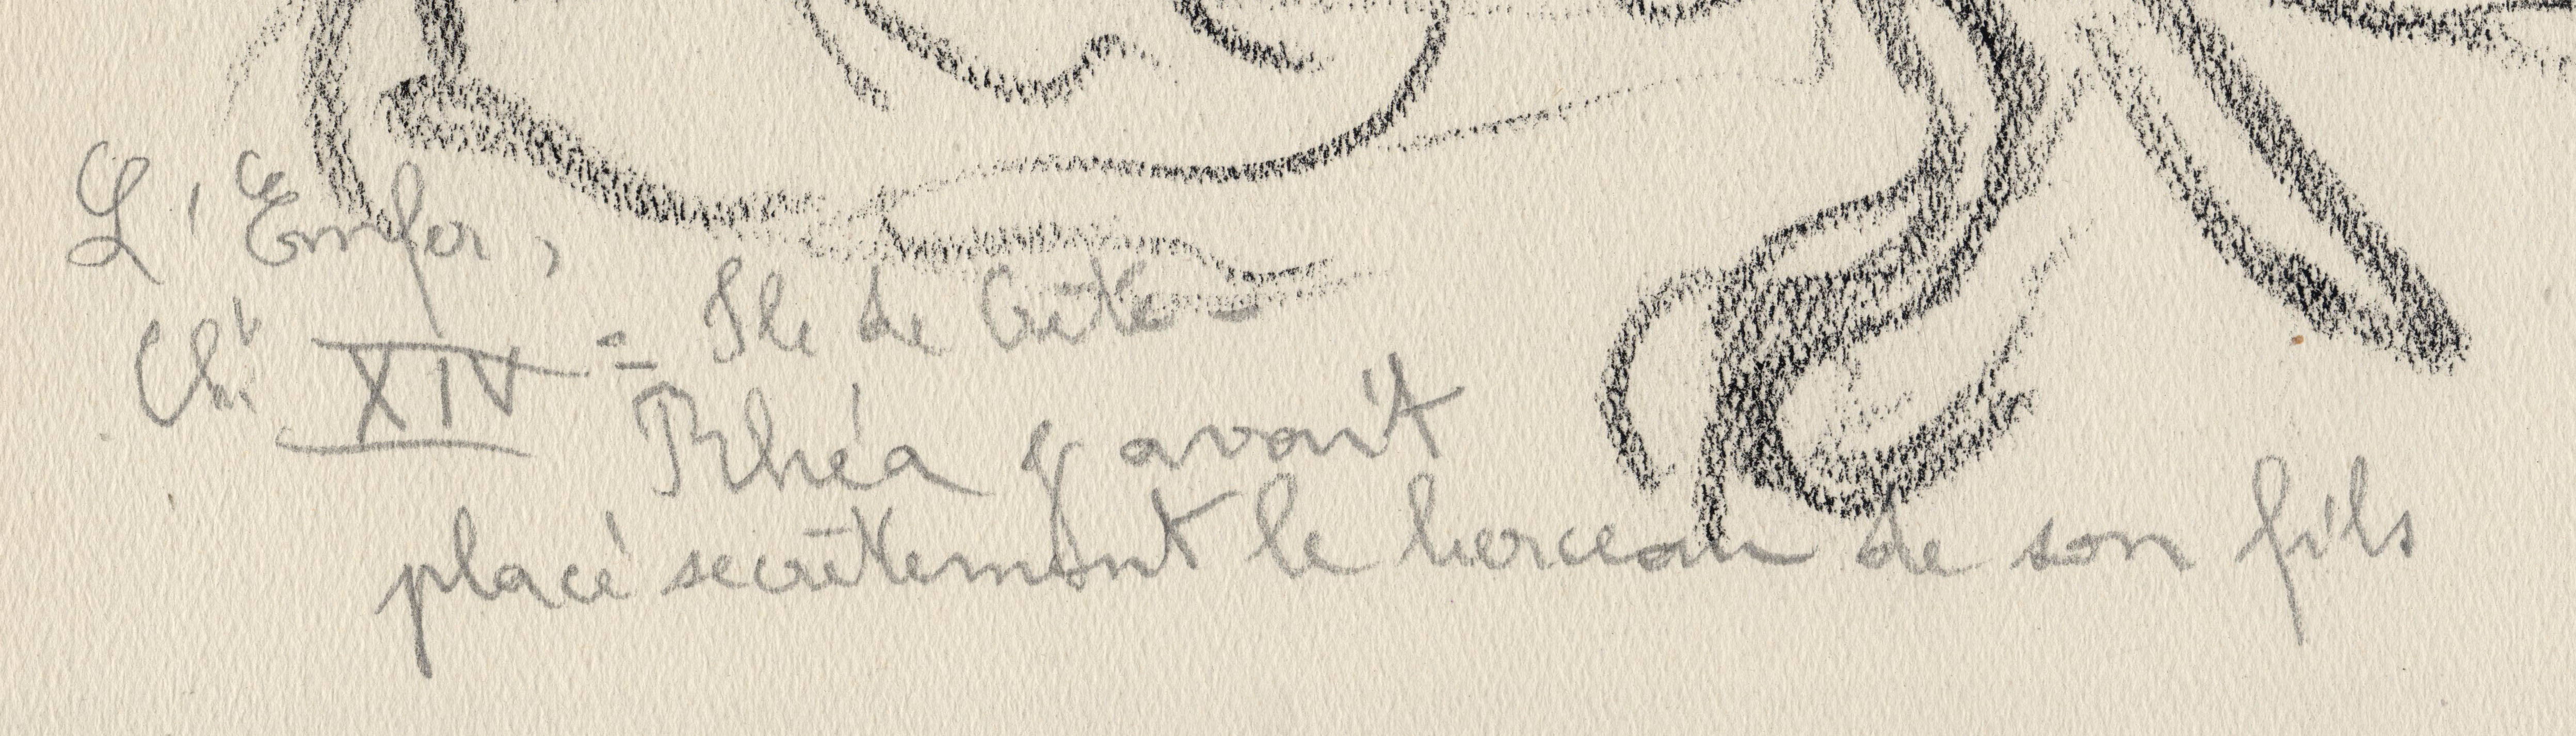 L'Enfer,
Cht XIV = Ile de Crête -
Rhéa y avait
placé secrètement le berceau de son fils